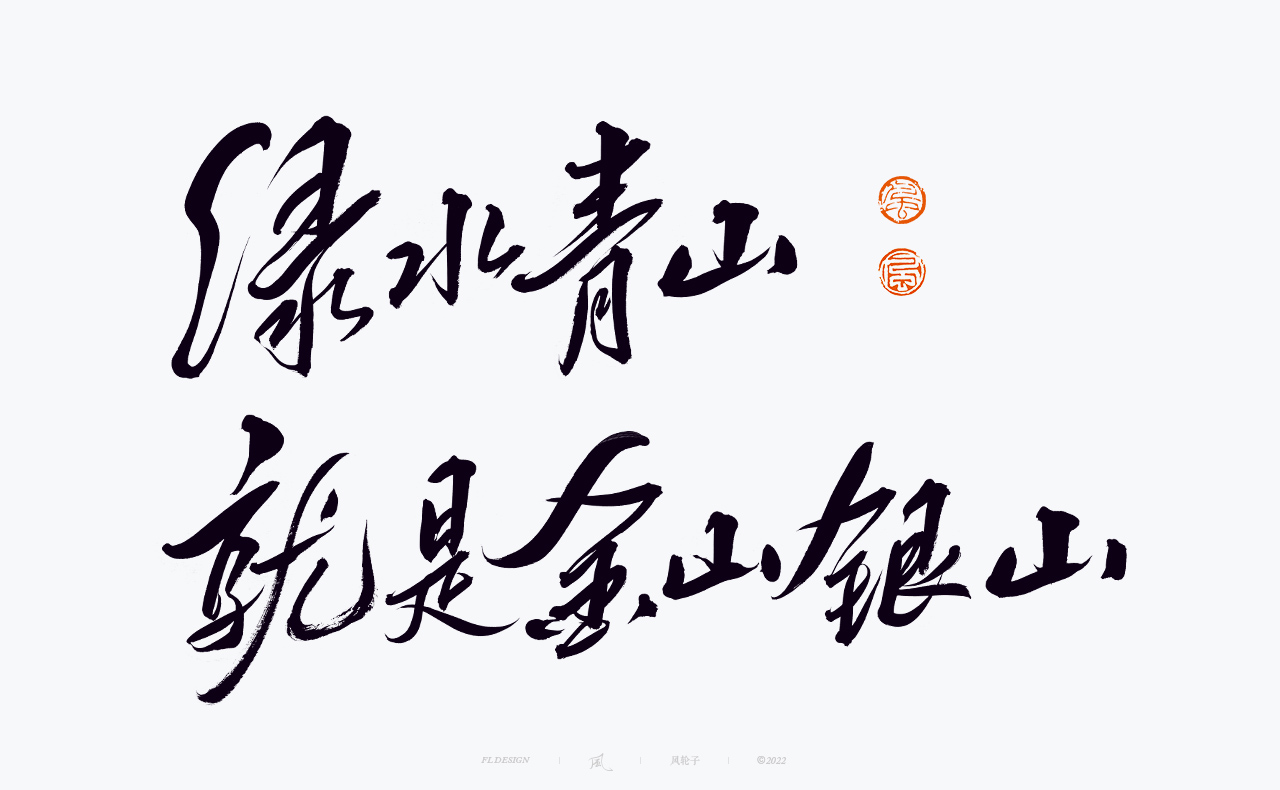 绿水青山
就是金山银山
FL.DESIGN 風 风轮子 ©2022